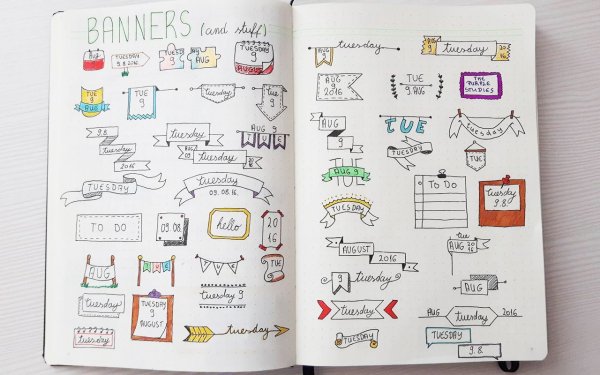 BANNERS (and stuff)
AUG
TUESDAY
9.8.2016
9
AUG
TUESDAY
9
AUGUST
TUE
9
AUG
TUE
9
tuesday
9.8.
tuesday
2016
tuesday
tuesday
AUG 9
TUE
TUESDAY
tuesday
09.08.16
TO DO
09.08.
hello
20
16
AUG
TUE
TUE
TUE
tuesday
TUESDAY
9
AUGUST
tuesday 9
tuesday
tuesday
AUG
9
tuesday
AUG
9
tuesday
20
16
AUG
9
2016
TUE
9.AUG
THE
PURPLE
STUDIES
AUG
9
TUE
tuesday
tuesday
TUE
AUG 9
TUE
TUESDAY
TO DO
tuesday
9.8.
AUGUST
2016
tue
AUG 20
16
9
tuesday
AUG
tuesday
AUG
tuesday
2016
TUESDAY
TUESDAY
9.8.